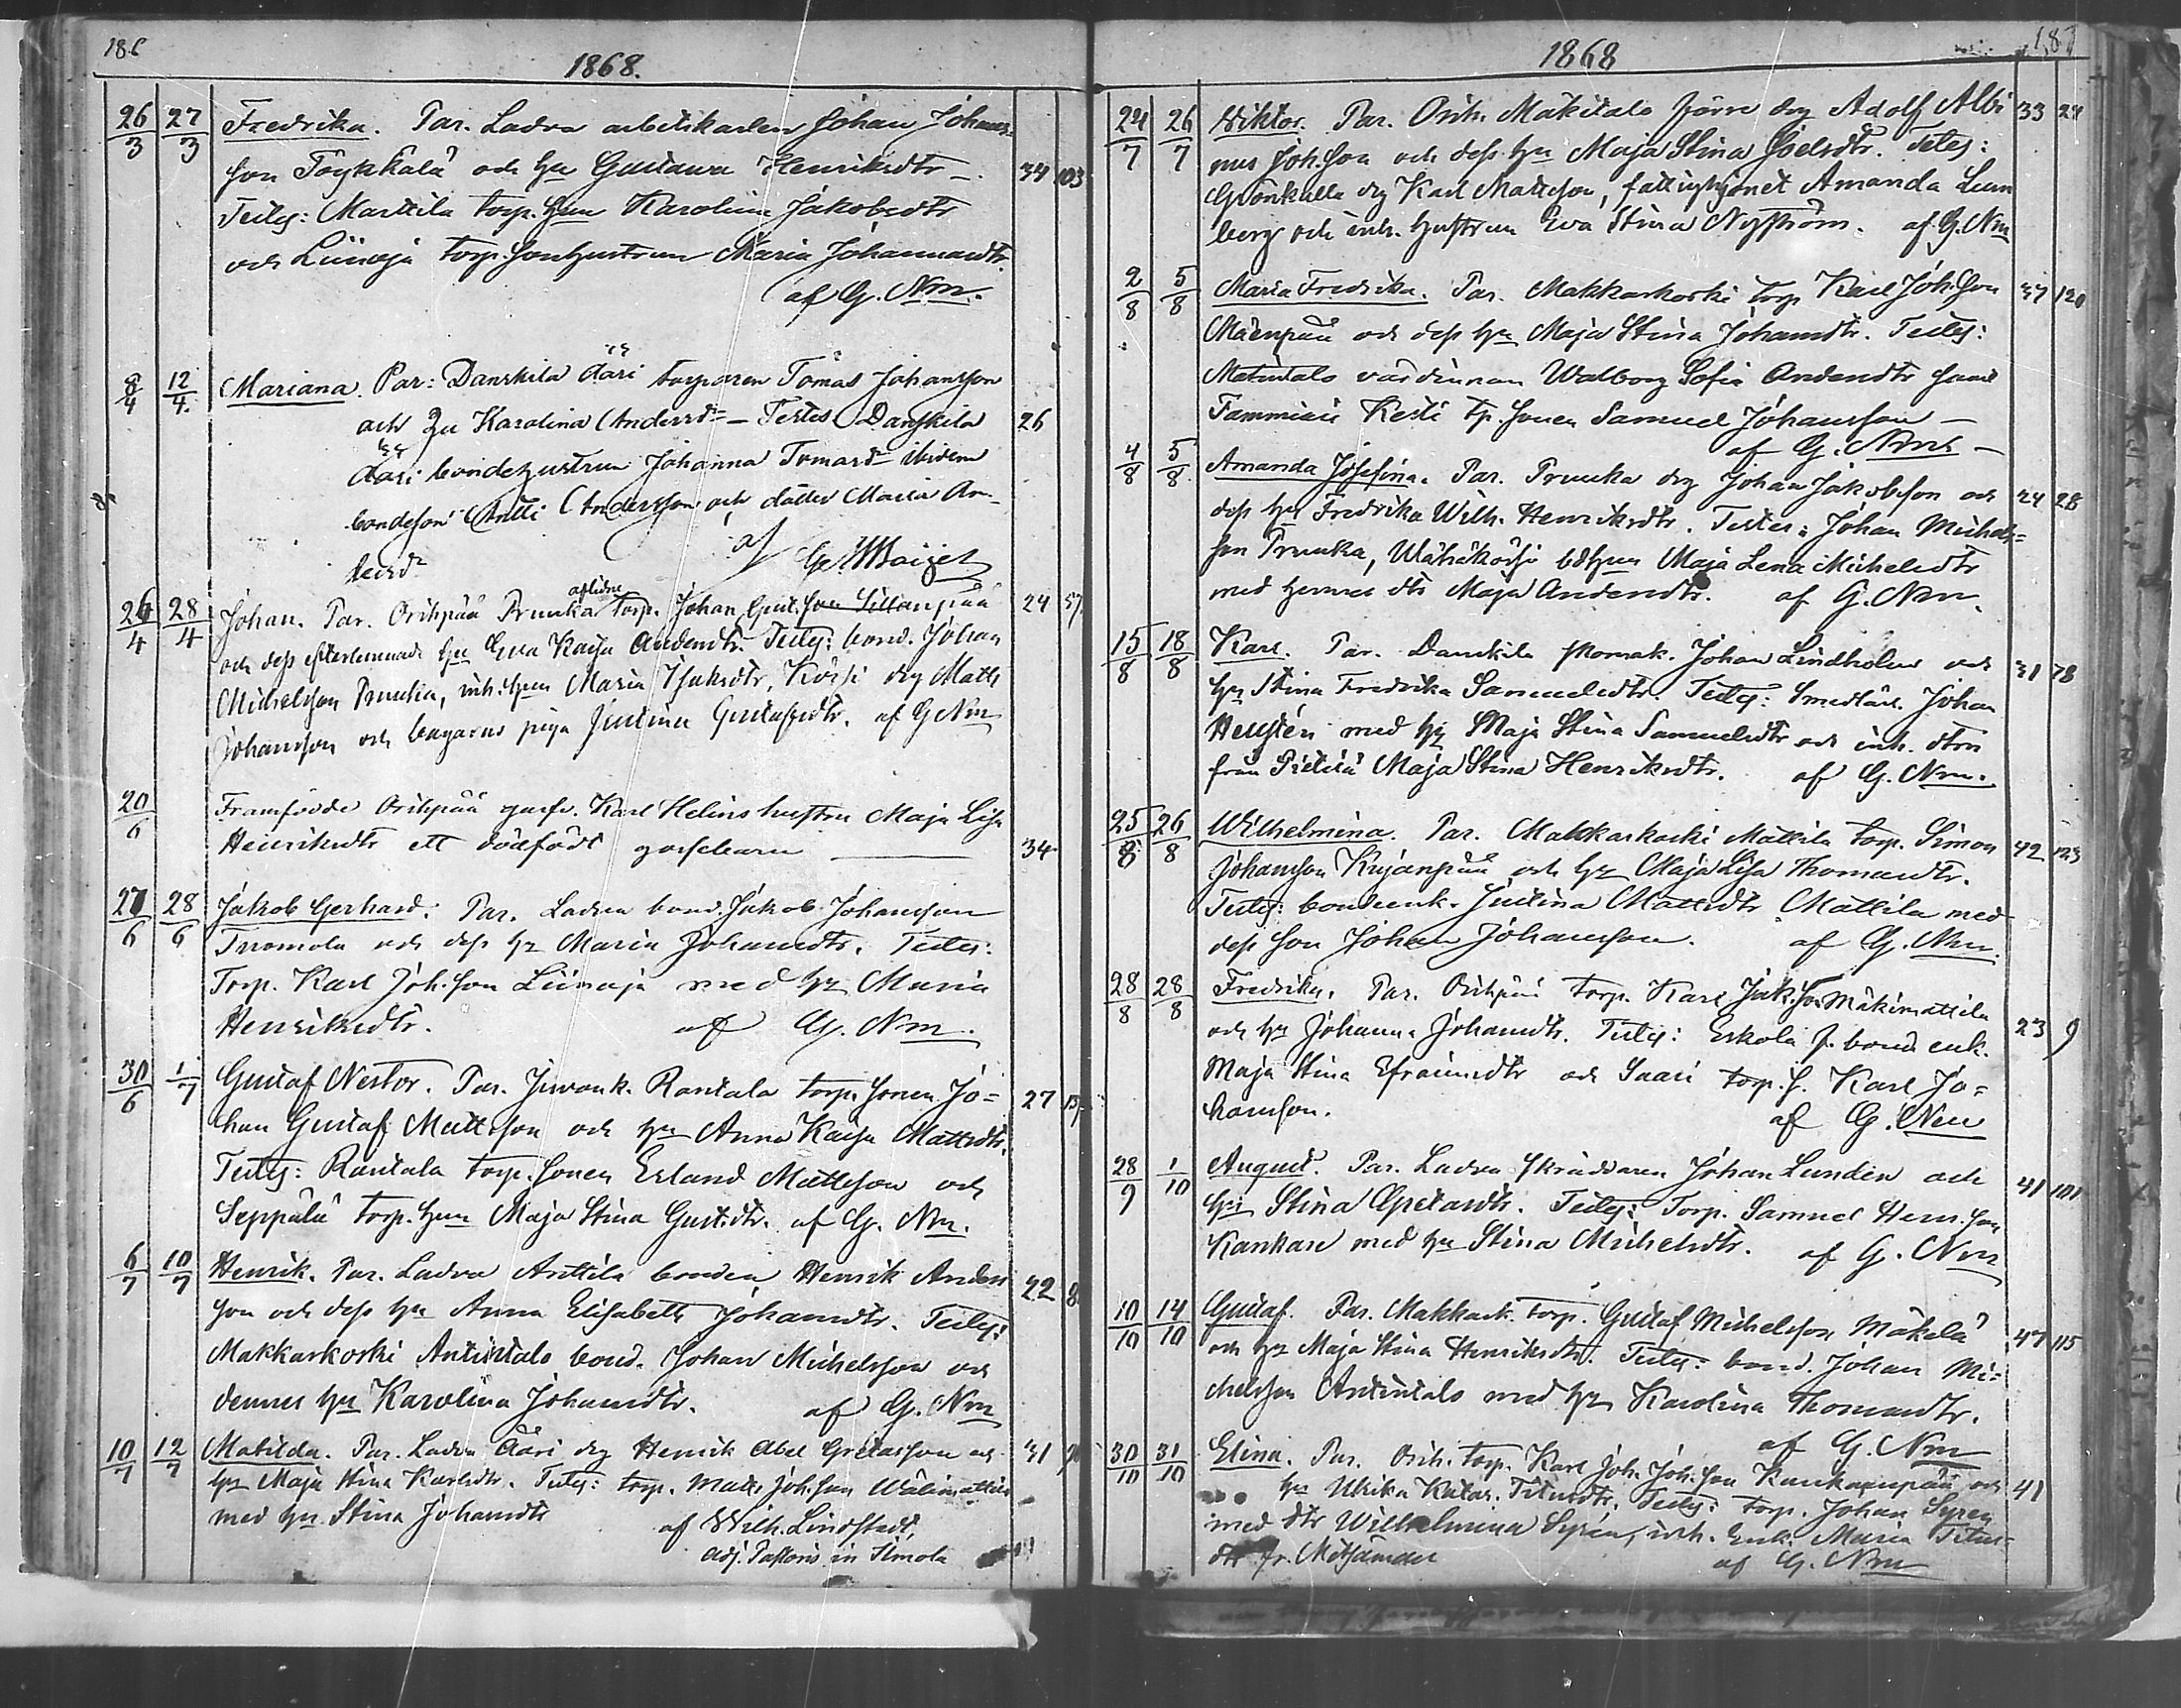 186
1868.
26/3 27/3 Fredrika. Par. Ladva arbetskarlen Johan Johans
son Töykkälä och hu Gustava Henriksdtr — 34 103
Testes: Marttila torp. hun Karolina Jakobsdtr
och Liinoja torp. sonhustrun Maria Johannsdtr.
af G. Nm.
8/4 12/4 Mariana. Par: Danskila Ääri torparen Tomas Johansson
och Hu Karolina Andersdr – Testes Danskila 26
Ääri bondehustrun Johanna Tomasdr ibidem
bondeson Antti Andersson och dotter Maria An-
dersdr
af
26/4 28/4 Johan. Par. Orihpää Prunka aflidne torp. Johan Gust.son 24 57
och dess efterlemnade hu Eva Kajsa Andersdtr. Testes: bond. Johan
Michelsson Prunka, inh. hun Maria Isaksdtr, Körsi drg Matts
Johansson och bagarns piga Justina Gustafsdtr. af G Nm
20/6 Framfödde Orihpää garfv. Karl Helins hustru Maja Lisa
Henriksdtr ett dödfödt gossebarn — 34
27/6 28/6 Jakob Gerhard. Par. Ladva bond. Jakob Johansson
Tuomola och dess hu Maria Johansdtr. Testes:
Torp. Karl Joh.son Liinoja med hu Maria
Henriksdtr. af G. Nm.
30/6 1/7 Gustaf Nestor. Par. Juvank. Rantala torp. sonen Jo= 27
han Gustaf Mattsson och hu Anna Kaisa Mattsdtr.
Testes: Rantala torp. sonen Erland Mattsson och
Seppälä torp. hun Maja Stina Gust.dtr. af G. Nm.
6/7 10/7 Henrik. Par. Ladva Anttila bonden Henrik Anders 42
son och dess hu Anna Elisabeth Johansdtr. Testes:
Makkarkoski Antintalo bond. Johan Michelsson och
dennes hu Karolina Johansdtr. af G. Nm
10/7 12/7 Matilda. Par. Ladva Ääri drg Henrik Abel Gretasson och 31
hu Maja Stina Karlsdtr. Testes: torp. Matts Joh.son Wälimattila
med hu Stina Johansdtr af Wilh. Lindstedt,
adj. Pastoris in Ilmola
187
1868
24/7 26/7 Viktor. Par. Orih. Mäkitalo förre drg Adolf Albi 33 24
nus Joh.son och dess hu Maja Stina Joelsdtr. Testes:
Grönkulla drg Karl Mattsson, fattighjonet Amanda Lum
berg och inh. hustrun Eva Stina Nyström. af G. Nm
2/8 5/8 Maria Fredrika. Par. Makkarkoski torp Karl Joh.son 37 120
Mäenpää och dess hu Maja Stina Johansdtr. Testes:
Metsätalo värdinnan Walborg Sofia Andersdtr samt
Tamminen Kesti tp. sonen Samuel Johansson —
af G. Nm —
4/8 5/8 Amanda Josefina. Par. Prunka drg Johan Jakobsson och 24 28
dess hu Fredrika Wilh. Henriksdtr. Testes: Johan Michels=
son Prunka, Wähäkörsi bdhun Maja Lena Michelsdtr
med hennes dtr Maja Andersdtr. af G. Nm.
15/8 18/8 Karl. Par. Danskila skomak. Johan Lindholm och 31 78
hu Stina Fredrika Samuelsdtr. Testes: Smedlärl. Johan
Hellstén med hu Maja Stina Samuelsdtr och inh. dtrn
från Prittilä Maja Stina Henriksdtr. af G. Nm.
25/8 26/8 Wilhelmina. Par. Makkarkoski Mattila torp. Simon 42 123
Johansson Kujanpää och hu Maja Lisa Thomasdtr.
Testes: bondeenk. Justina Mattsdtr Mattila med
dess son Johan Johansson. af G. Nm.
28/8 28/8 Fredrika. Par. Orihpää torp. Karl Jak.son Mäkimattila
och hu Johanna Johansdtr. Testes: Eskola f. bond. enk. 23 9
Maja Stina Efraimsdtr och Saari torp. s. Karl Jo=
hansson. af G. Nm
28/9 1/10 August. Par. Ladva skräddaren Johan Lundén och 41 101
hu Stina Gretasdtr. Testes: Torp. Samuel Henr.son
Kankare med hu Stina Michelsdtr. af G. Nm
10/10 14/10 Gustaf. Par. Makkark. torp. Gustaf Michelsson Mäkelä 47 115
och hu Maja Stina Henriksdtr. Testes: bond. Johan Mi-
chelsson Antintalo med hu Karolina Thomasdtr.
af G. Nm
30/10 31/10 Elina. Par. Orih. torp. Karl Joh. Joh.son Kankaanpää och 41
hu Ulrika Katar. Titusdtr. Testes: torp. Johan Syrén
med dtr Wilhelmina Syrén, inh. Enk. Maria Titus-
dtr fr. Metsämaa
af G. Nm